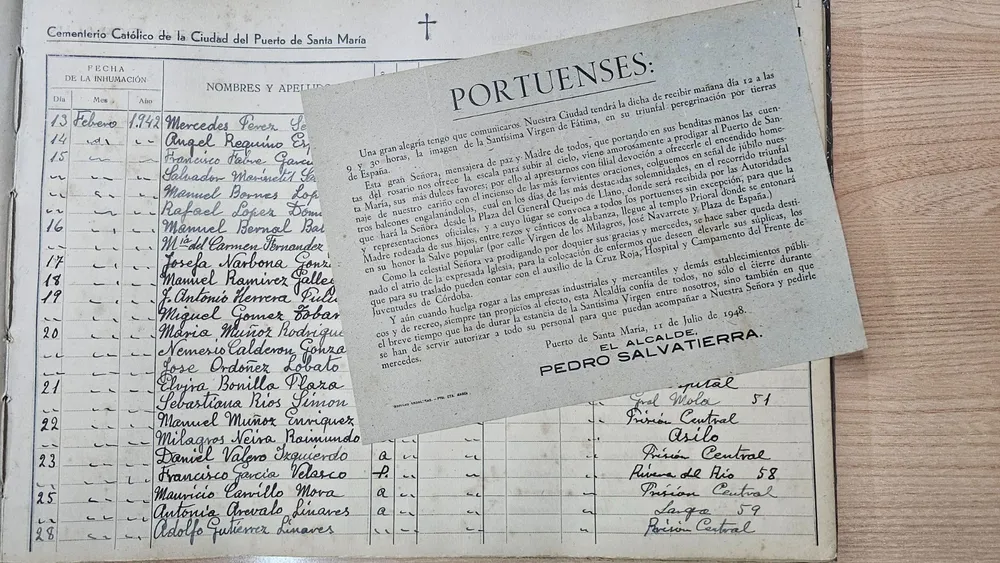 Cementerio Católico de la Ciudad del Puerto de Santa María
FECHA
DE LA INHUMACIÓN
NOMBRES Y APELLIDOS
Día Mes Año
13 Febrero 1.942 Mercedes Pérez
14 Angel Requino
15 Francisco Fabre Garcia
Salvador Marinetti
Manuel Bornes Lop
Rafael Lopez Dom
16 Manuel Bernal Ba
Mª del Carmen Fernandez
17 Josefa Narbona Gonz
18 Manuel Ramirez Galle
19 J. Antonio Herrera Puli
Miguel Gomez Tobar
20 Maria Muñoz Rodrigue
Nemesio Calderon Gonza
Jose Ordoñez Lobato
21 Elvira Bonilla Plaza
Sebastiana Rios Simon Gral Mola 51
22 Manuel Muñoz Enriquez Prisión Central
Milagros Neira Raimundo Asilo
23 Daniel Valero Izquierdo a Prisión Central
Francisco Garcia Velasco P. Rivera del Rio 58
25 Mauricio Carvillo Mora a Prision Central
Antonia Arevalo Linares a Larga 59
28 Adolfo Gutierrez Linares Prisión Central
PORTUENSES:
Una gran alegría tengo que comunicaros. Nuestra Ciudad tendrá la dicha de recibir mañana día 12 a las
9 y 30 horas, la imagen de la Santísima Virgen de Fátima, en su triunfal peregrinación por tierras
de España.
Esta gran Señora, mensajera de paz y Madre de todos, que portando en sus benditas manos las cuen-
tas del rosario nos ofrece la escala para subir al cielo, viene amorosamente a prodigar al Puerto de San-
ta María, sus más dulces favores; por ello al aprestarnos con filial devoción a ofrecerle el encendido home-
naje de nuestro cariño con el incienso de las más fervientes oraciones, colguemos en señal de júbilo nues-
tros balcones engalanándolos, cual en los días de las más destacadas solemnidades, en el recorrido triunfal
que hará la Señora desde la Plaza del General Queipo de Llano, donde será recibida por las Autoridades
y representaciones oficiales, y a cuyo lugar se convoca a todos los portuenses sin excepción, para que la
Madre rodeada de sus hijos, entre rezos y cánticos de alabanza, llegue al templo Prioral donde se entonará
en su honor la Salve popular (por calle Virgen de los Milagros, José Navarrete y Plaza de España).
Como la celestial Señora va prodigando por doquier sus gracias y mercedes, se hace saber queda desti-
nado el atrio de la expresada Iglesia, para la colocación de enfermos que deseen elevarle sus súplicas, los
que para su traslado pueden contar con el auxilio de la Cruz Roja, Hospital y Campamento del Frente de
Juventudes de Córdoba.
Y aún cuando huelga rogar a las empresas industriales y mercantiles y demás establecimientos públi-
cos y de recreo, siempre tan propicios al efecto, esta Alcaldía confía de todos, no sólo el cierre durante
el breve tiempo que ha de durar la estancia de la Santísima Virgen entre nosotros, sino también en que
se han de servir autorizar a todo su personal para que puedan acompañar a Nuestra Señora y pedirle
mercedes.
Puerto de Santa María, 11 de Julio de 1948.
EL ALCALDE,
PEDRO SALVATIERRA.